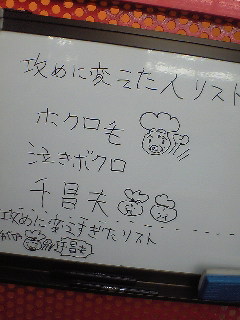 攻めに変えた人リスト
ホクロ毛
泣きボクロ
千昌夫
攻めに変えすぎたリスト
千昌夫